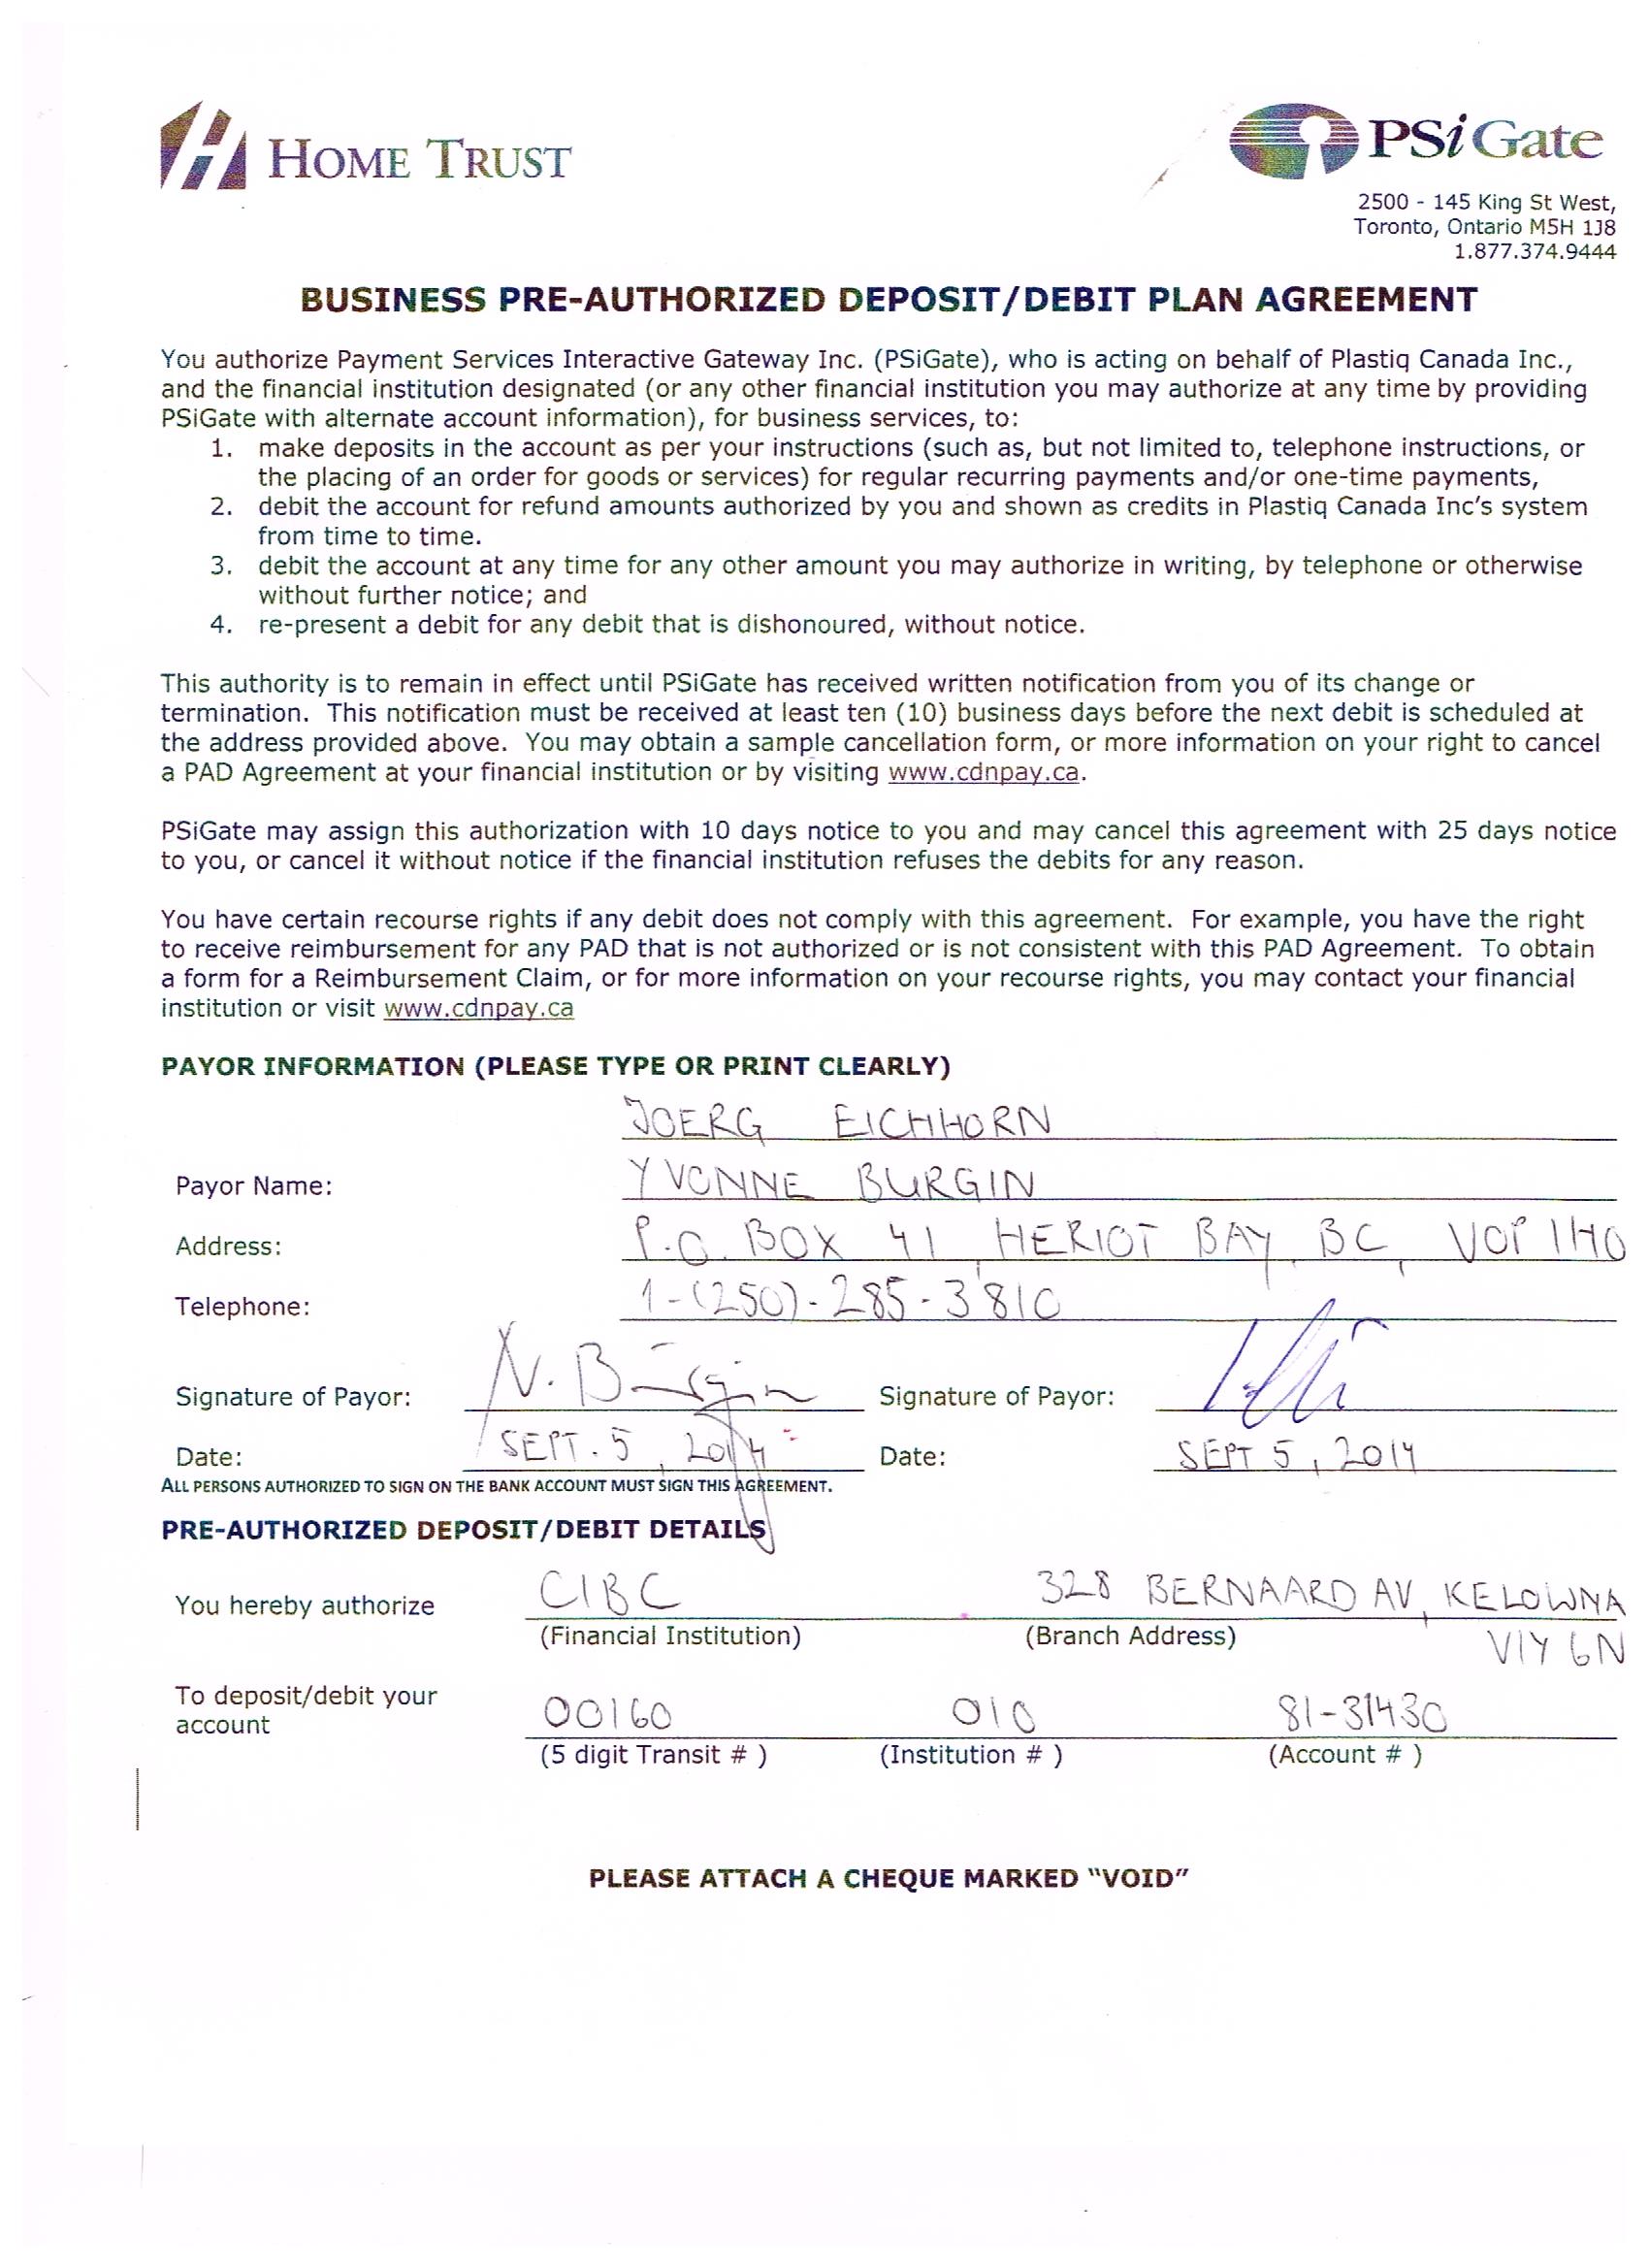 HOME TRUST
PSiGate
2500 - 145 King St West,
Toronto, Ontario M5H 1J8
1.877.374.9444
BUSINESS PRE-AUTHORIZED DEPOSIT/DEBIT PLAN AGREEMENT
You authorize Payment Services Interactive Gateway Inc. (PSiGate), who is acting on behalf of Plastiq Canada Inc.,
and the financial institution designated (or any other financial institution you may authorize at any time by providing
PSiGate with alternate account information), for business services, to:
1. make deposits in the account as per your instructions (such as, but not limited to, telephone instructions, or
the placing of an order for goods or services) for regular recurring payments and/or one-time payments,
2. debit the account for refund amounts authorized by you and shown as credits in Plastiq Canada Inc's system
from time to time.
3. debit the account at any time for any other amount you may authorize in writing, by telephone or otherwise
without further notice; and
4. re-present a debit for any debit that is dishonoured, without notice.
This authority is to remain in effect until PSiGate has received written notification from you of its change or
termination. This notification must be received at least ten (10) business days before the next debit is scheduled at
the address provided above. You may obtain a sample cancellation form, or more information on your right to cancel
a PAD Agreement at your financial institution or by visiting www.cdnpay.ca.
PSiGate may assign this authorization with 10 days notice to you and may cancel this agreement with 25 days notice
to you, or cancel it without notice if the financial institution refuses the debits for any reason.
You have certain recourse rights if any debit does not comply with this agreement. For example, you have the right
to receive reimbursement for any PAD that is not authorized or is not consistent with this PAD Agreement. To obtain
a form for a Reimbursement Claim, or for more information on your recourse rights, you may contact your financial
institution or visit www.cdnpay.ca
PAYOR INFORMATION (PLEASE TYPE OR PRINT CLEARLY)
JOERG EICHHORN
Payor Name: YVONNE BURGIN
Address: P.O. BOX 41 HERIOT BAY, BC, V0P 1H0
Telephone: 1-(250)-285-3810
Signature of Payor: Signature of Payor:
Date: SEPT. 5, 2014 Date: SEPT 5, 2014
ALL PERSONS AUTHORIZED TO SIGN ON THE BANK ACCOUNT MUST SIGN THIS AGREEMENT.
PRE-AUTHORIZED DEPOSIT/DEBIT DETAILS
You hereby authorize CIBC 328 BERNAARD AV, KELOWNA
(Financial Institution) (Branch Address) V1Y 6N
To deposit/debit your
account 00160 010 81-31430
(5 digit Transit # ) (Institution # ) (Account # )
PLEASE ATTACH A CHEQUE MARKED "VOID"